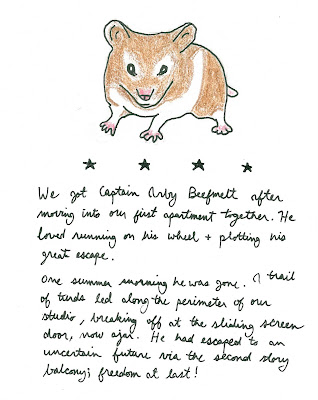 We got Captain Arby Beefmelt after
moving into our first apartment together. He
loved running on his wheel + plotting his
great escape.
One summer morning he was gone. A trail
of turds led along the perimeter of our
studio, breaking off at the sliding screen
door, now ajar. He had escaped to an
uncertain future via the second story
balcony; freedom at last!